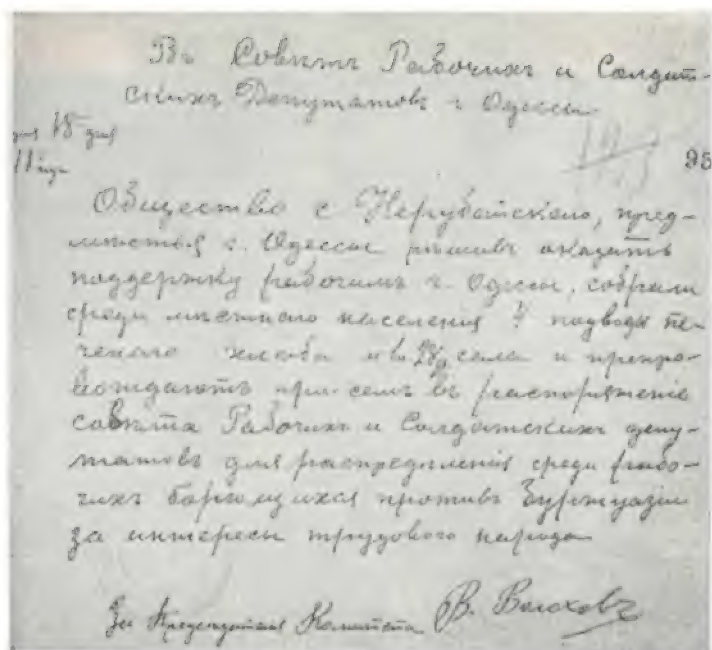 Въ Совѣтъ Рабочихъ и Солдат-
скихъ Депутатовъ г. Одессы
18
11
95
Общество с Нерубайскаго, пред-
мѣстья г. Одессы рѣшивъ оказать
поддержку рабочимъ г. Одессы, собрали
среди мѣстнаго населенія 4 подводы пе-
ченаго хлѣба сала и препро-
вождаютъ при семъ въ распоряженіе
совѣта Рабочихъ и Солдатскихъ депу-
татовъ для распредѣленія среди рабо-
чихъ борющихся противъ Буржуазіи
за интересы трудового народа
За Предсѣдателя Комитета В. Волоховъ